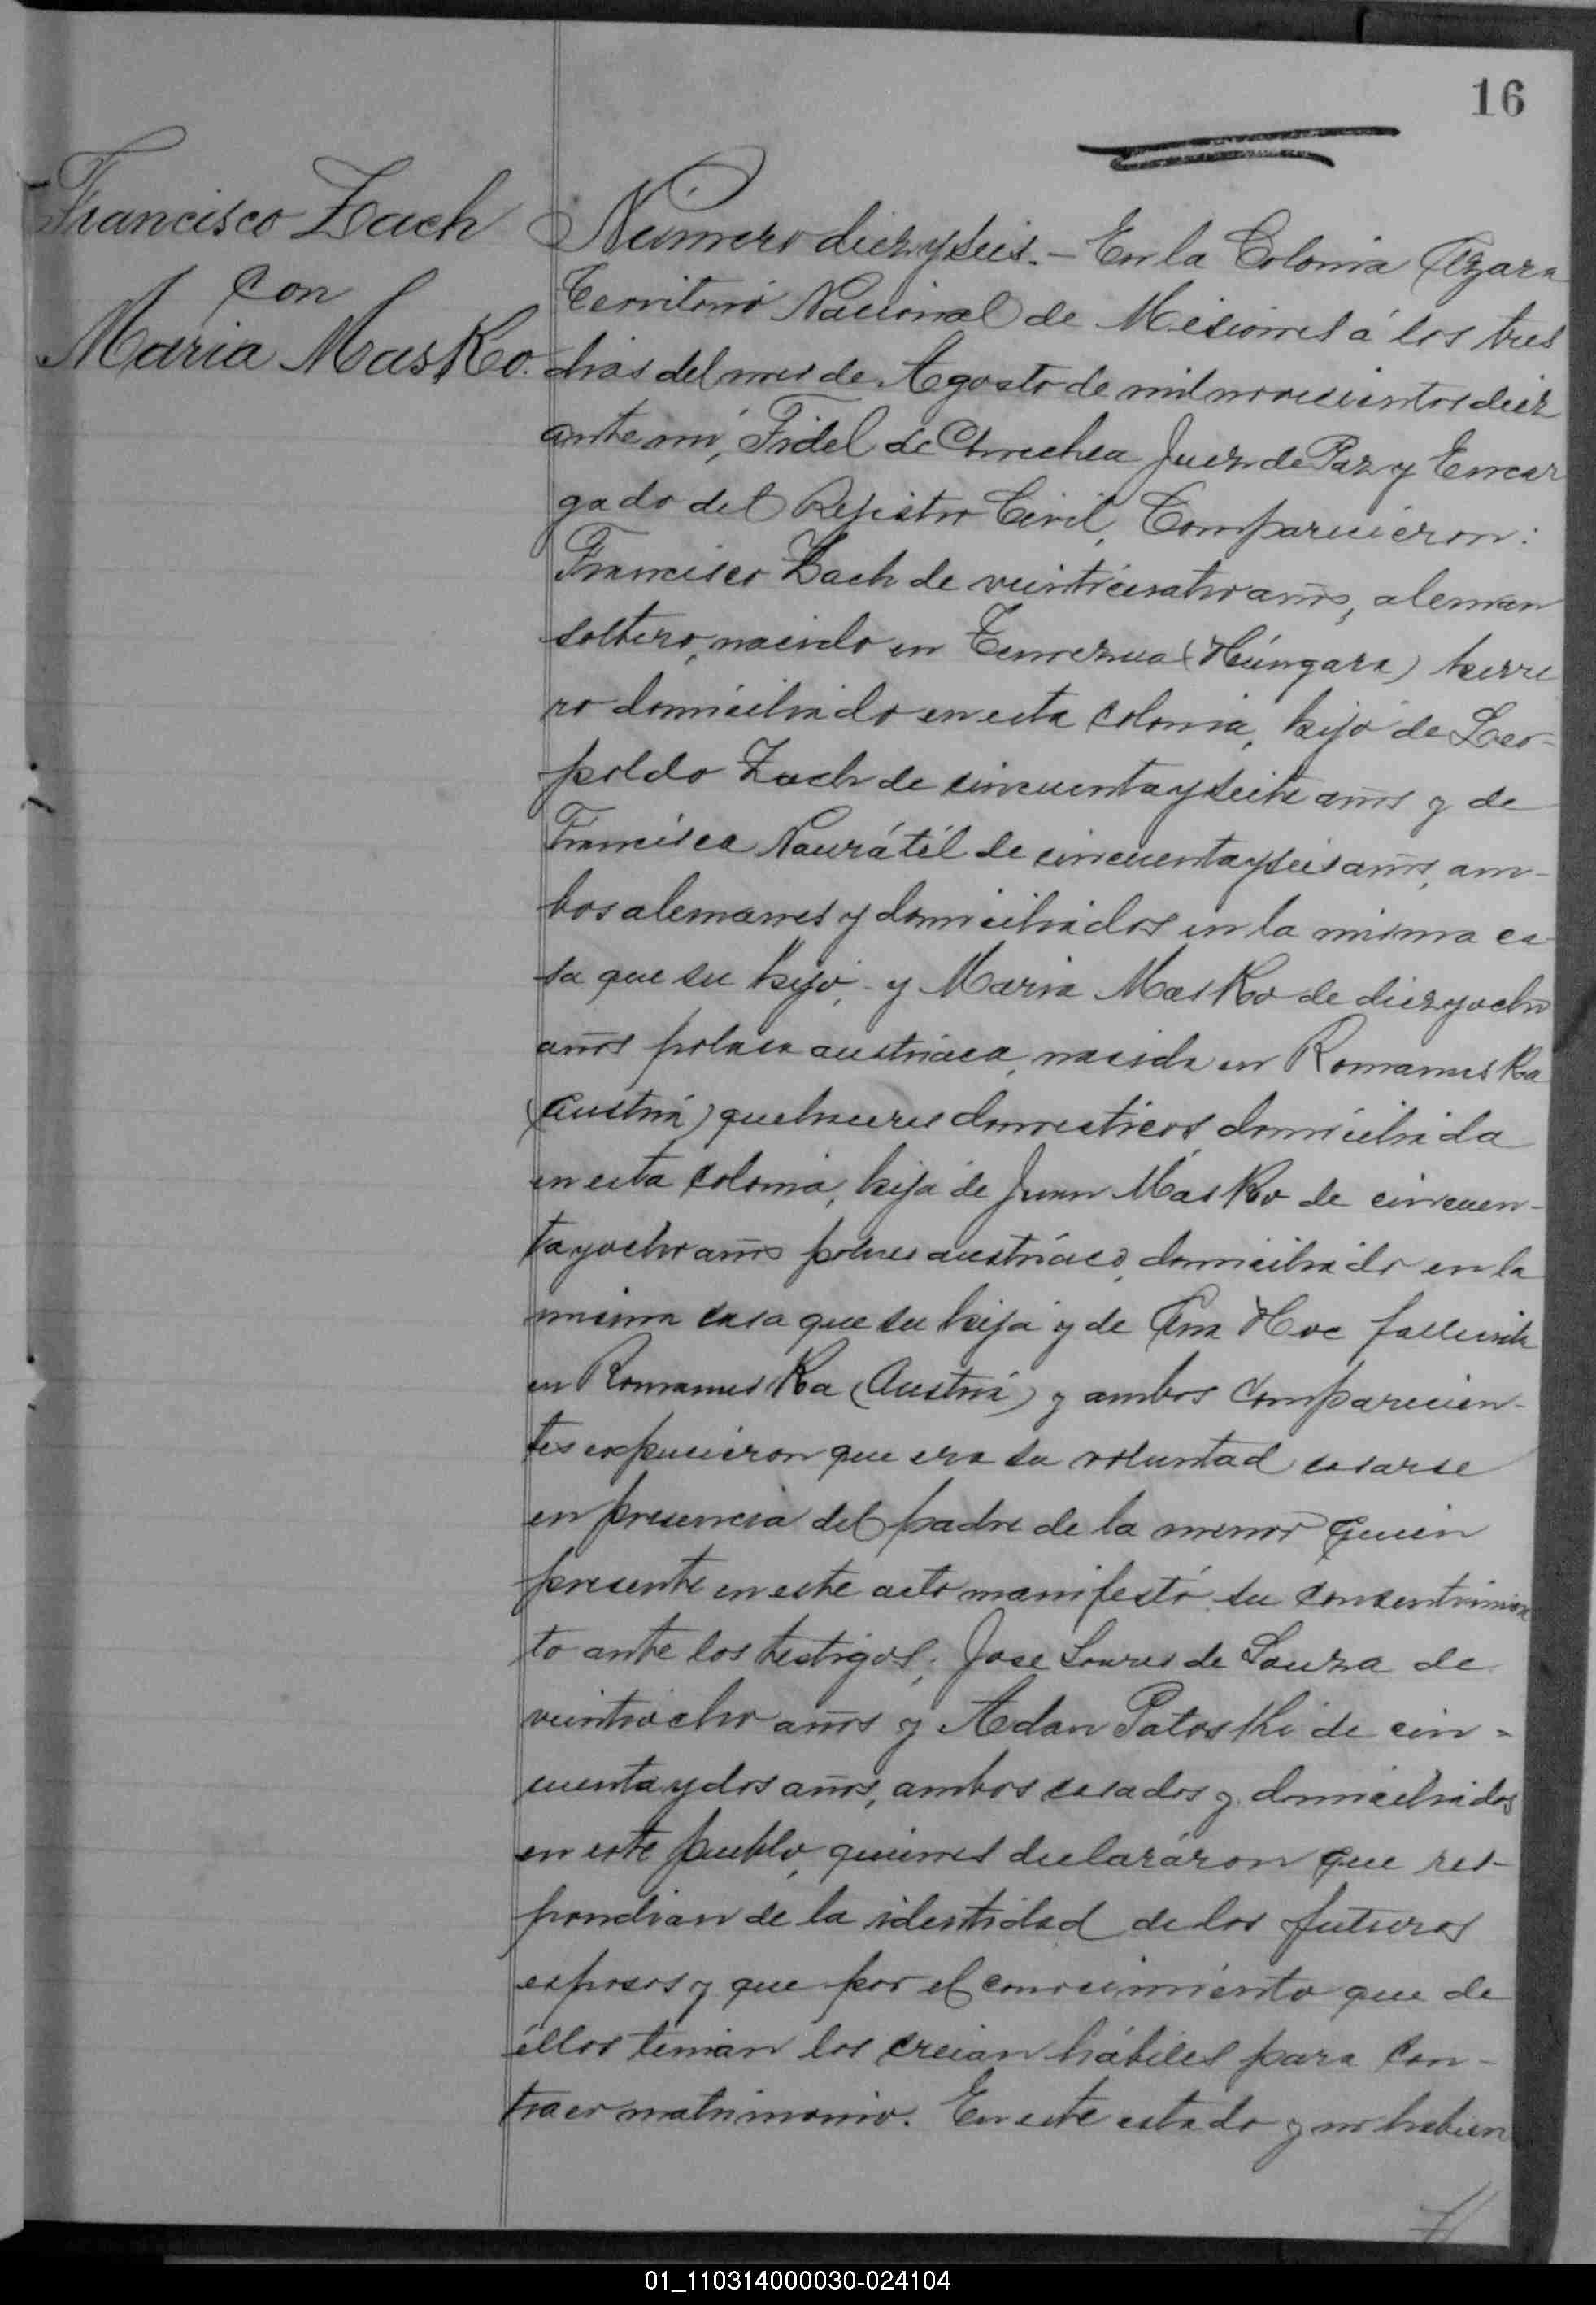 16
Francisco Zach
con
Maria Masko.
Número diez y seis. — En la Colonia Azara
Territorio Nacional de Misiones á los tres
dias del mes de Agosto de mil novecientos diez
ante mí, Fidel de Juez de Paz y Encar
gado del Rejistro Civil, Comparecieron:
Francisco Zach de veinticuatro años, aleman
soltero, nacido en (Húngara) herre
ro domiciliado en esta colonia, hijo de Leo-
poldo Zach de cincuenta y siete años y de
Francisca Naurátil de cincuenta y seis años, am-
bos alemanes y domiciliados en la misma ca-
sa que su hijo, - y Maria Masko de diez y ocho
años polaca austriaca, nacida en Romanuska
(Austria) quehaceres domesticos, domiciliada
en esta colonia, hija de Juan Masko de cincuen-
ta y ocho años polaco austríaco, domiciliado en la
misma casa que su hija y de Ana Hoc fallecida
en Romanuska (Austria) y ambos comparecien-
tes expusieron que era su voluntad casarse
en presencia del padre de la menor quien
presente en este acto manifestó su consentimien
to ante los testigos, Jose Soares de Souza de
veintiocho años y Adan Patoski de cin-
cuenta y dos años, ambos casados y domiciliados
en este pueblo, quienes declaráron que res-
pondian de la identidad de los futuros
esposos y que por el conocimiento que de
éllos tenian los creian hábiles para con-
traer matrimonio. En este estado y no habien
01_110314000030-024104